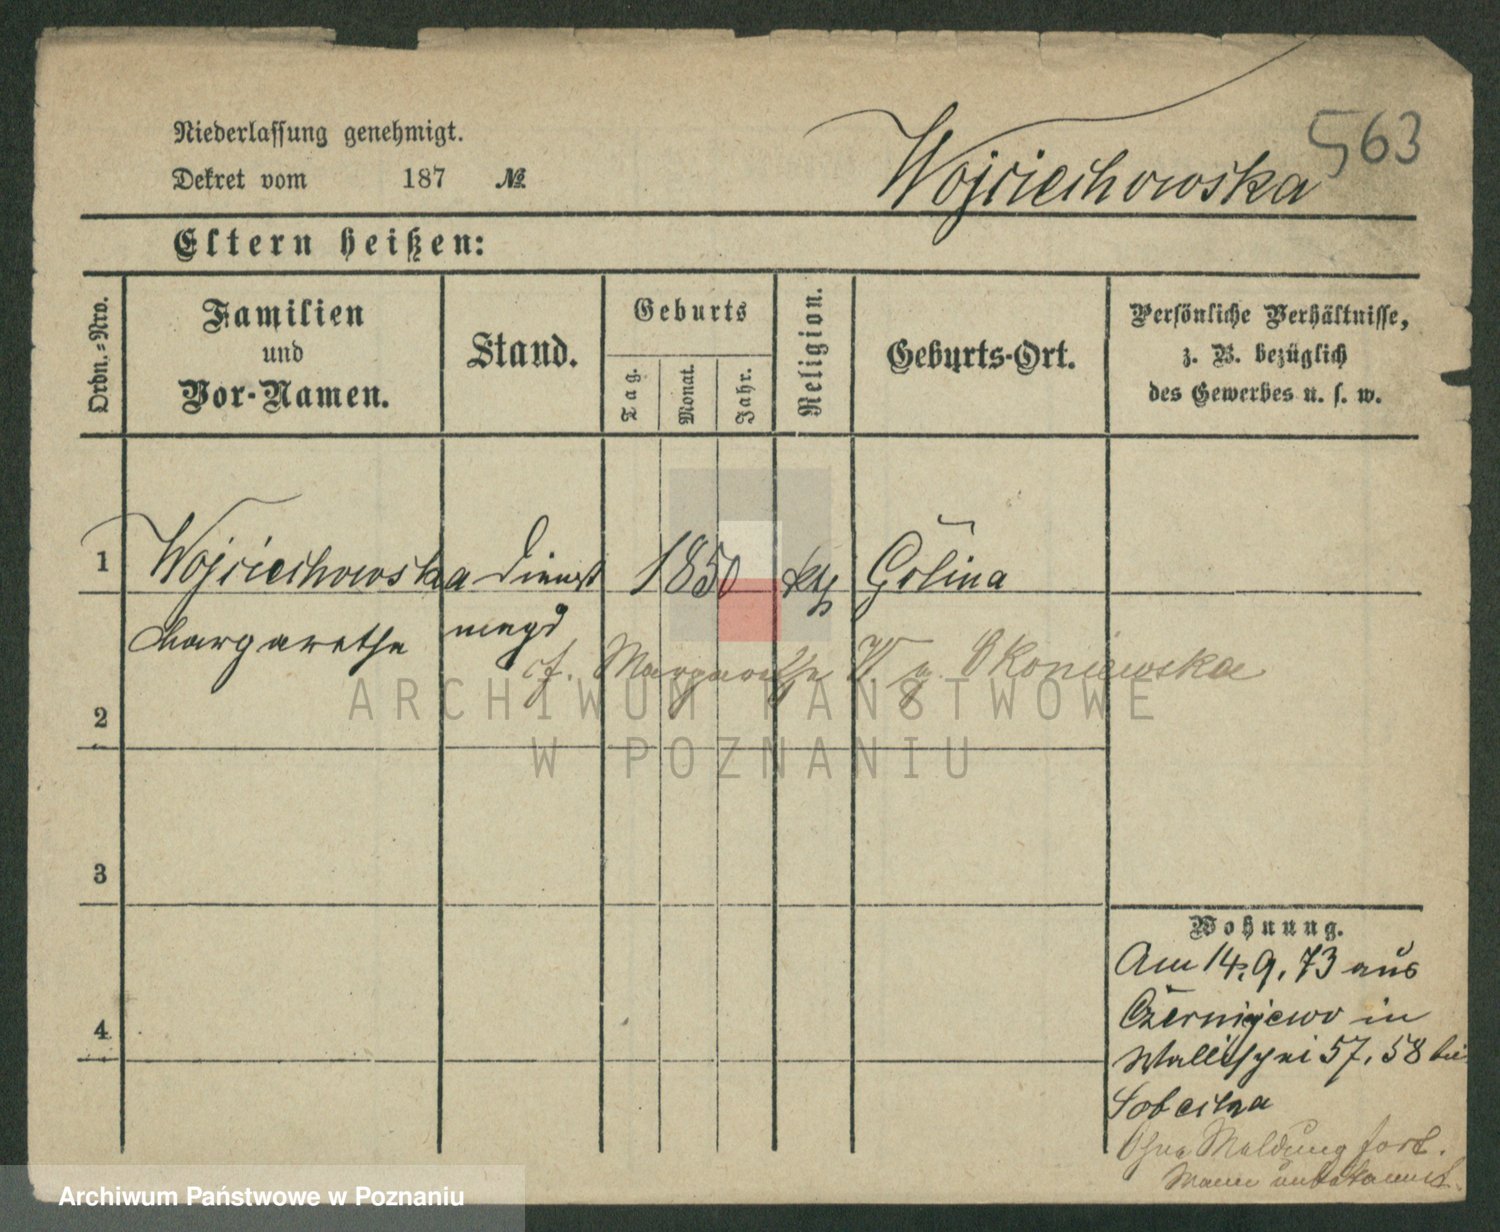 Niederlassung genehmigt.
Dekret vom 187 №
Wojciechowska
563
Eltern heißen:
Ordn.-Nro.
Familien
und
Vor-Namen.
Stand.
Geburts
Tag.
Monat.
Jahr.
Religion.
Geburts-Ort.
Persönliche Verhältnisse,
z. B. bezüglich
des Gewerbes u. s. w.
1 Wojciechowska Dienst 1850 kth Golina
Margarethe magd
cf. Margarethe W. g. Okoniewska
2
3
4
Wohnung.
Am 14. 9. 73 aus
Czerniejewo in
Wallischei 57, 58 bei
Ohne Meldung fort.
Wann unbekannt.
ARCHIWUM PAŃSTWOWE
W POZNANIU
Archiwum Państwowe w Poznaniu